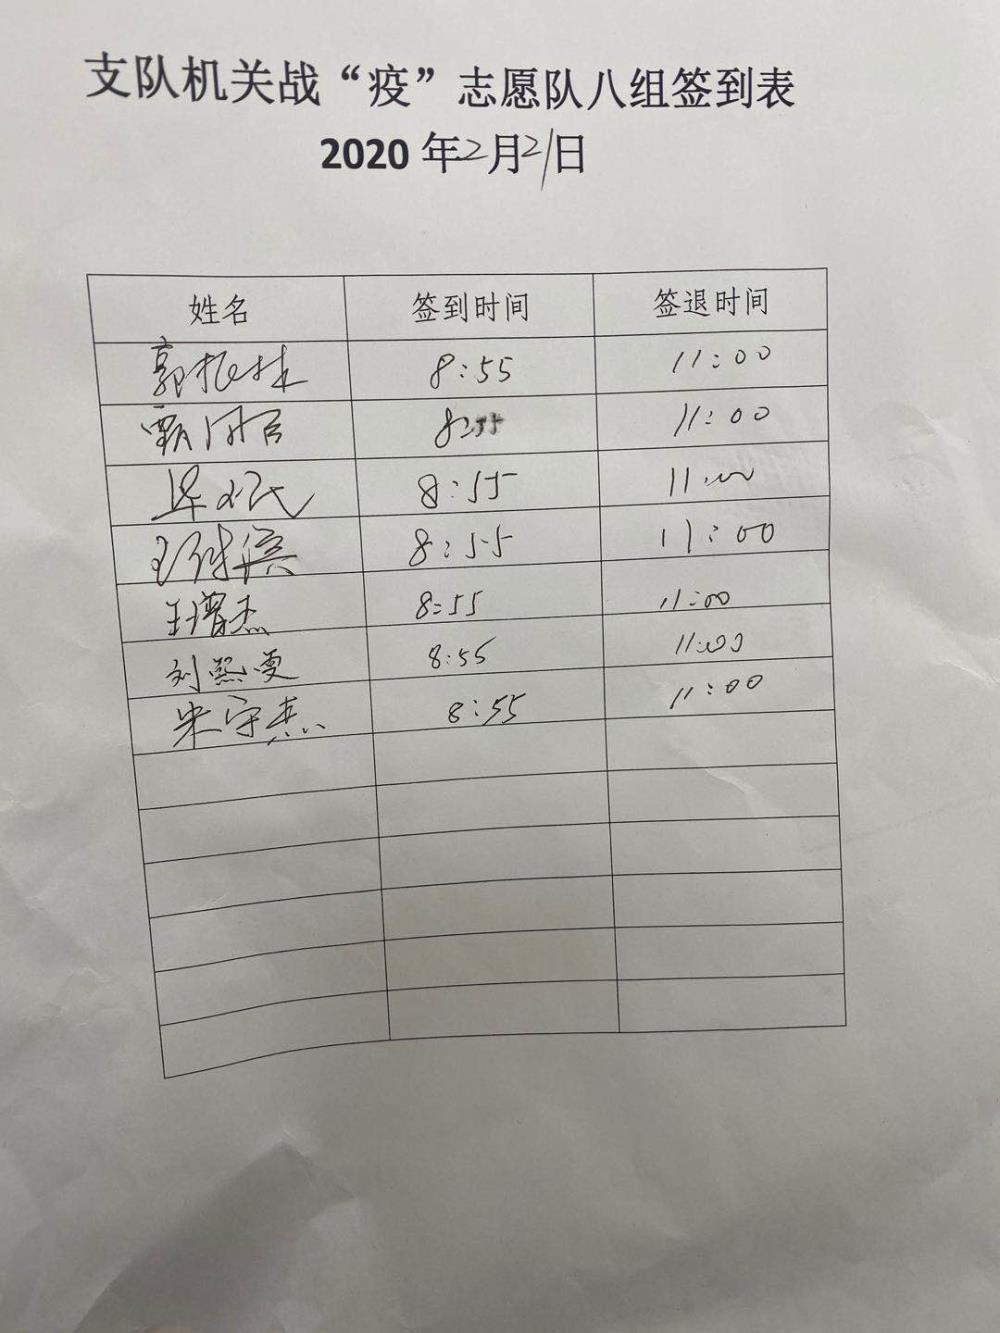 支队机关战“疫”志愿队八组签到表
2020年2月21日
姓名 签到时间 签退时间
郭振林 8:55 11:00
8:55 11:00
8:55 11:00
8:55 11:00
王增杰 8:55 11:00
刘熙雯 8:55 11:00
宋守杰 8:55 11:00